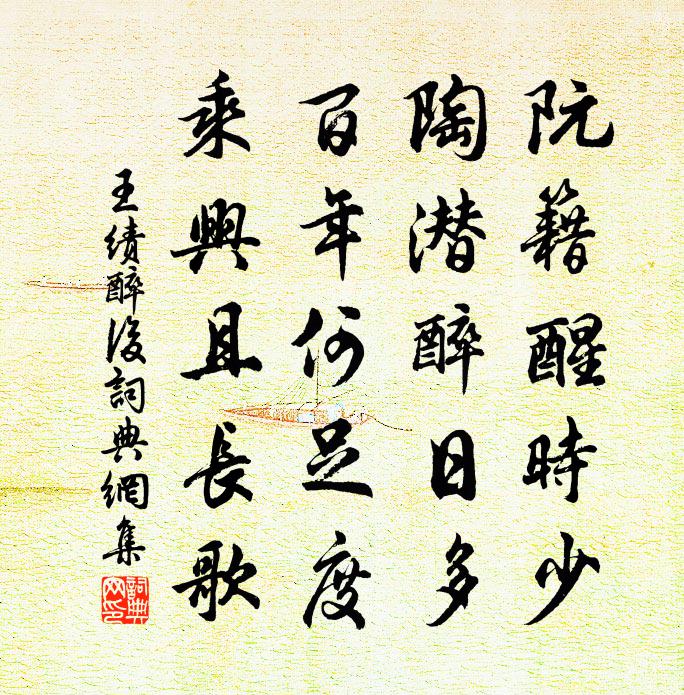 阮籍醒時少
陶潜醉日多
百年何足度
乘興且長歌
王績醉後詞典網集
詞典網印